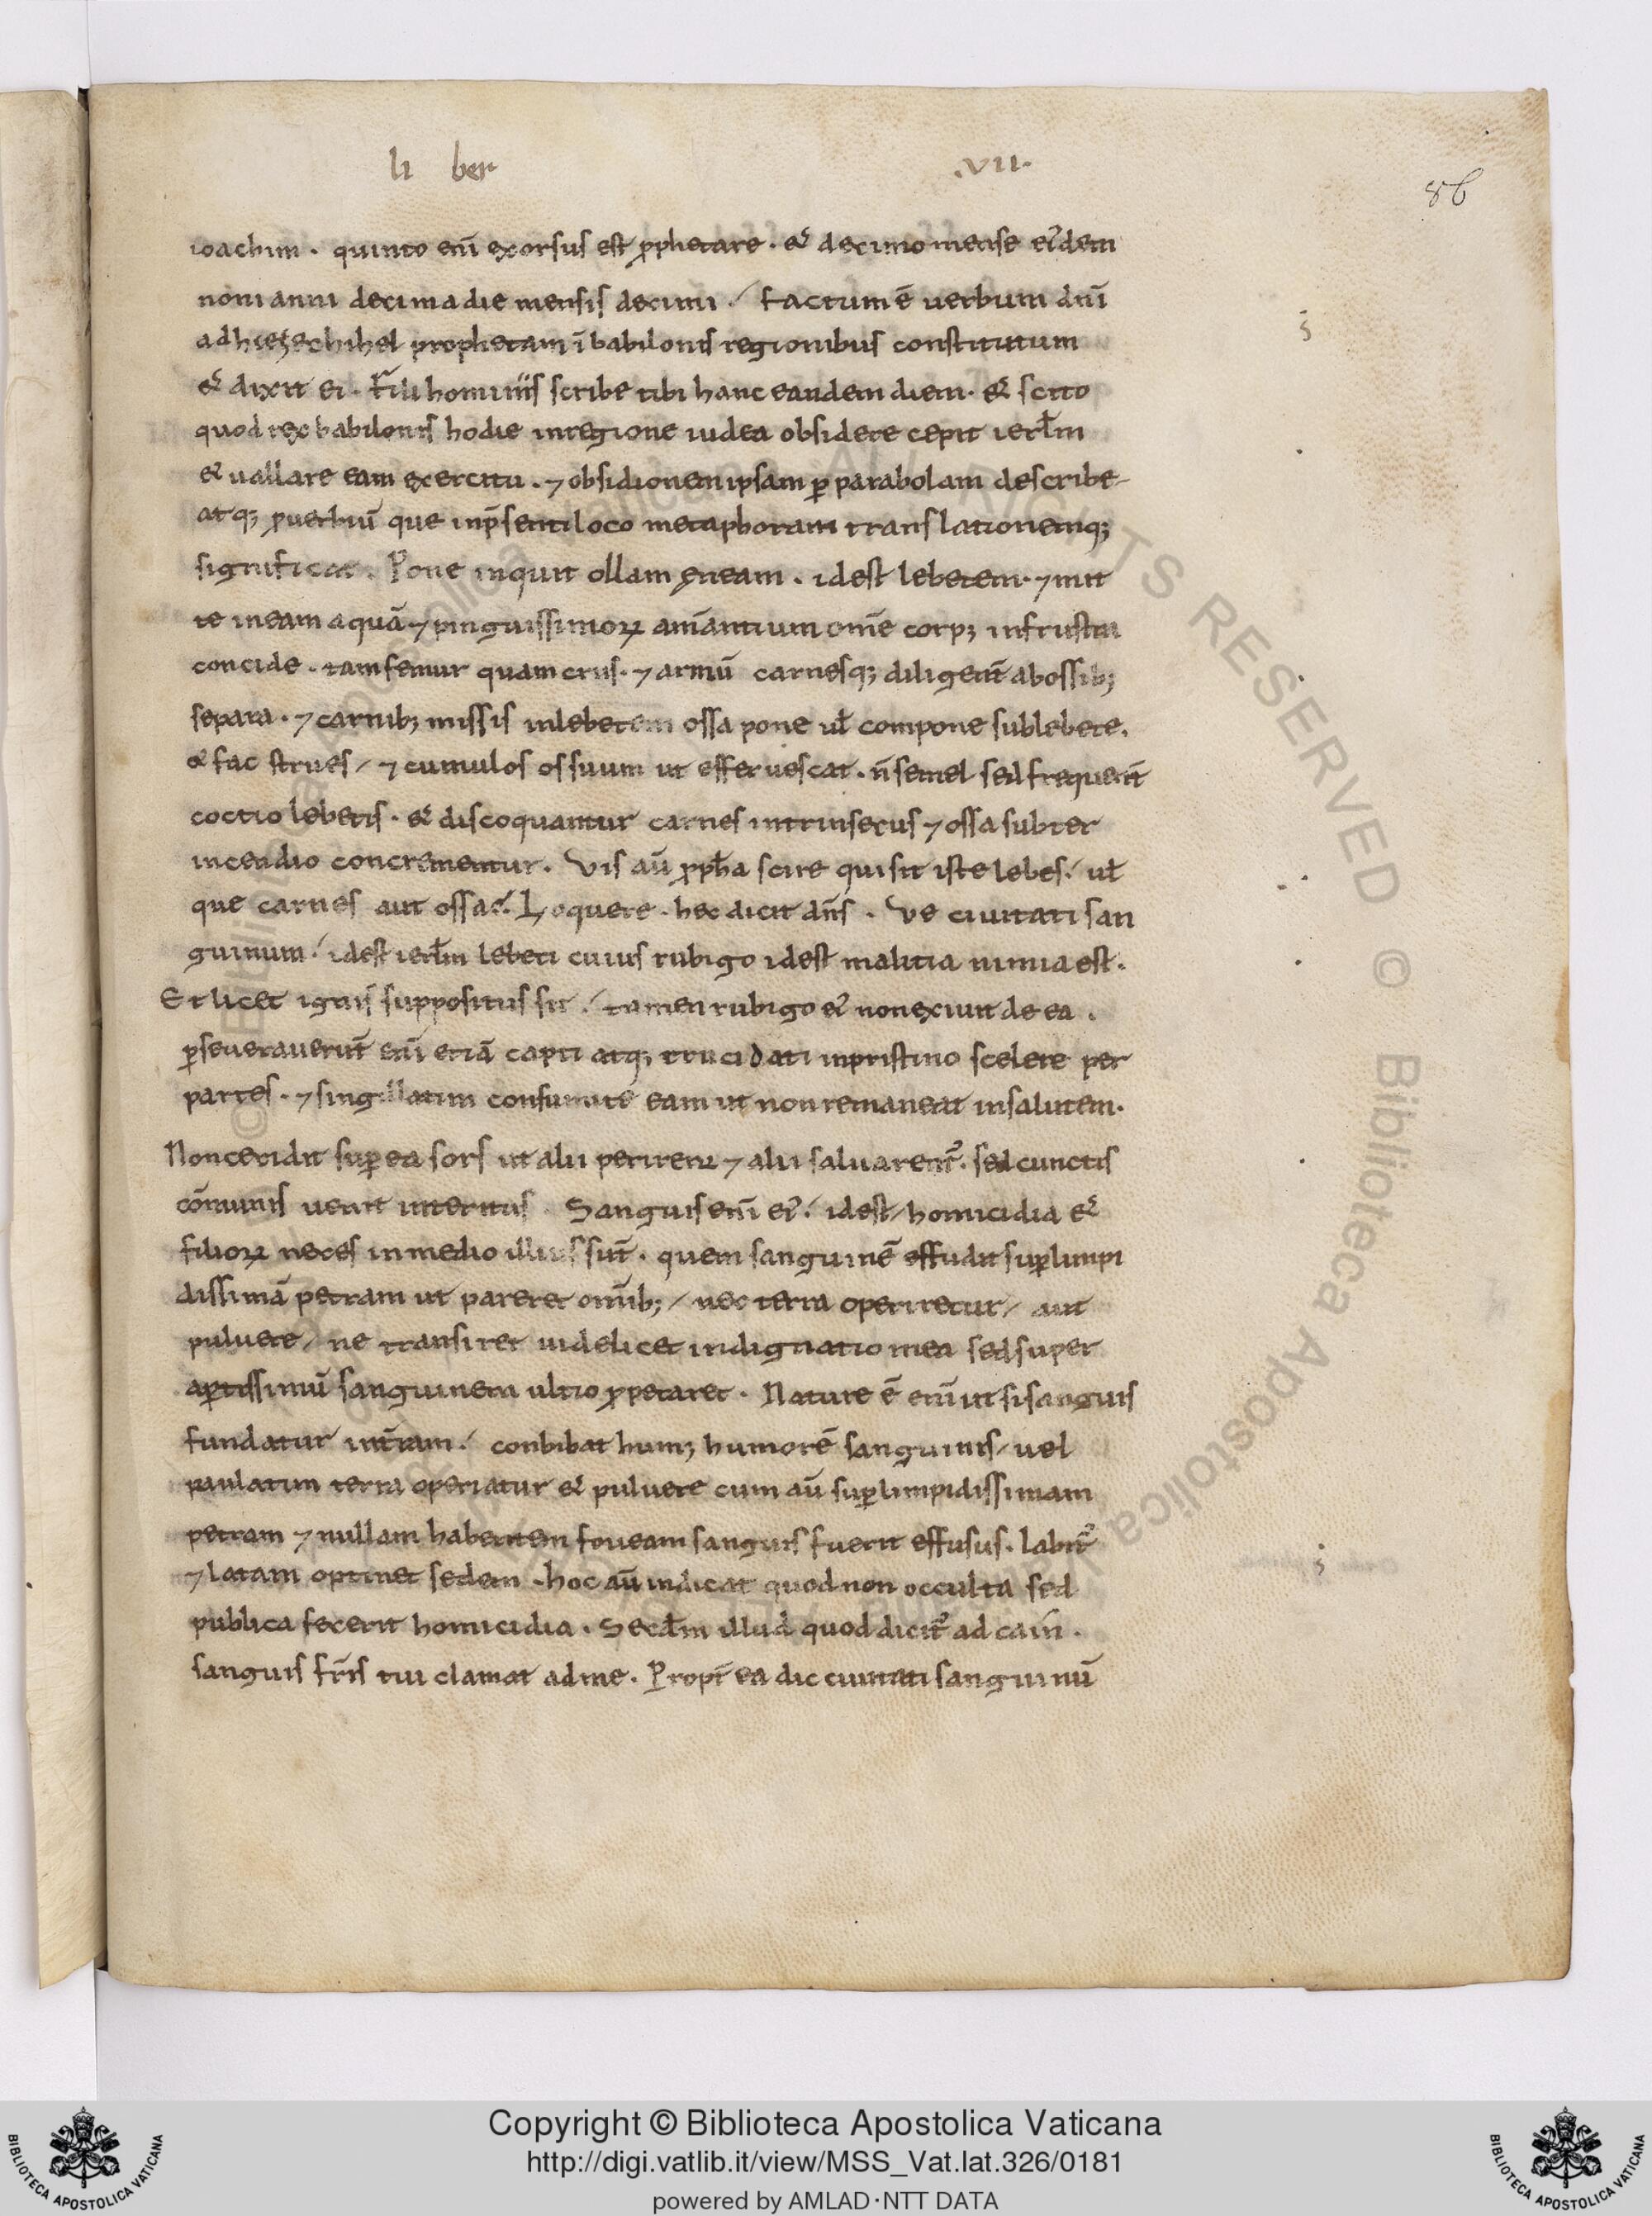 li ber .VII.
86
ioachim . quinto eni̅ exorsus est ꝓphetare . & decimo mense ei᾽dem
noni anni decima die mensis decimi / factum e̅ uerbum dn̅i
ad hiezechihel prophetam i̅ babilonis regionibus constitutum
& dixit ei . Fili hominis scribe tibi hanc eandem diem . & scito
quod rex babilonis hodie inregione iudea obsidere cepit ierl̅m
& uallare eam exercitu . ⁊ obsidionem ipsam ꝑ parabolam describe
atq; ꝓuerbiu̅ que inp̅sentiloco metaphoram translationemq;
significat . Pone inquit ollam ęneam . idest lebetem . ⁊ mit
te ineam aqua̅ ⁊ pinguissimoꝝ ani̅antium om̅e corp; infrusta
concide . tam femur quam crus . ⁊ armu̅ carnesq; diligent̅ abossib;
separa . ⁊ carnib; missis inlebetem ossa pone ul̅ compone sublebete .
& fac strues / ⁊ cumulos ossuum ut efferuescat . n̅ semel sed frequent̅
coctio lebetis . & discoquantur carnes intrinsecus ⁊ ossa subter
incendio concrementur . Vis au̅ ꝓph̅a scire qui sit iste lebes / ul̅
que carnes aut ossa ? Loquere . hec dicit dn̅s . Ve ciuitati san
guinum / idest ierl̅m lebeti cuius rubigo idest malitia nimia est .
Et licet ignis suppositus sit / tamen rubigo ei᾽ non exiuit de ea .
ꝑseuerauerut̅ eni̅ etia̅ capti atq; trucidati inpristino scelere per
partes . ⁊ singillatim consumite eam ut non remaneat insalutem .
Non cecidit suꝑ ea sors ut alii perirent ⁊ alii saluarent᾽ . sed cunctis
co̅munis uenit interitus . Sanguis eni̅ ei᾽ / idest / homicidia &
filioꝝ neces inmedio illius sut̅ . quem sanguine̅ effudit suꝑ limpi
dissima̅ petram ut pareret omi̅b; / nec terra operiretur / aut
puluere / ne transiret uidelicet indignatio mea sed super
aꝑtissimu̅ sanguinem ultio ꝓperaret . Nature e̅ eni̅ ut si sanguis
fundatur int̅ram / conbibat hum; humore̅ sanguinis / uel
paulatim terra operiatur & puluere cum au̅ suꝑ limpidissimam
petram ⁊ nullam habentem foueam sanguis fuerit effusus . labit᾽
⁊ latam optinet sedem . hoc au̅ indicat quod non occulta sed
publica fecerit homicidia . Secd̅m illud quod dicit᾽ ad cain .
sanguis fr̅is tui clamat ad me . Propt̅ ea dic ciuitati sanguinu̅
Copyright © Biblioteca Apostolica Vaticana
http://digi.vatlib.it/view/MSS_Vat.lat.326/0181
powered by AMLAD·NTT DATA